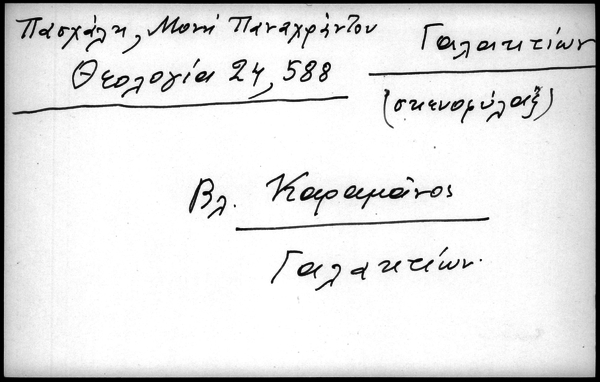 Πασχάλη, Μονή Παναχράντου
Θεολογία 24, 588
Γαλακτίων
(σκευοφύλαξ)
Βλ. Καραμάνος
Γαλακτίων.